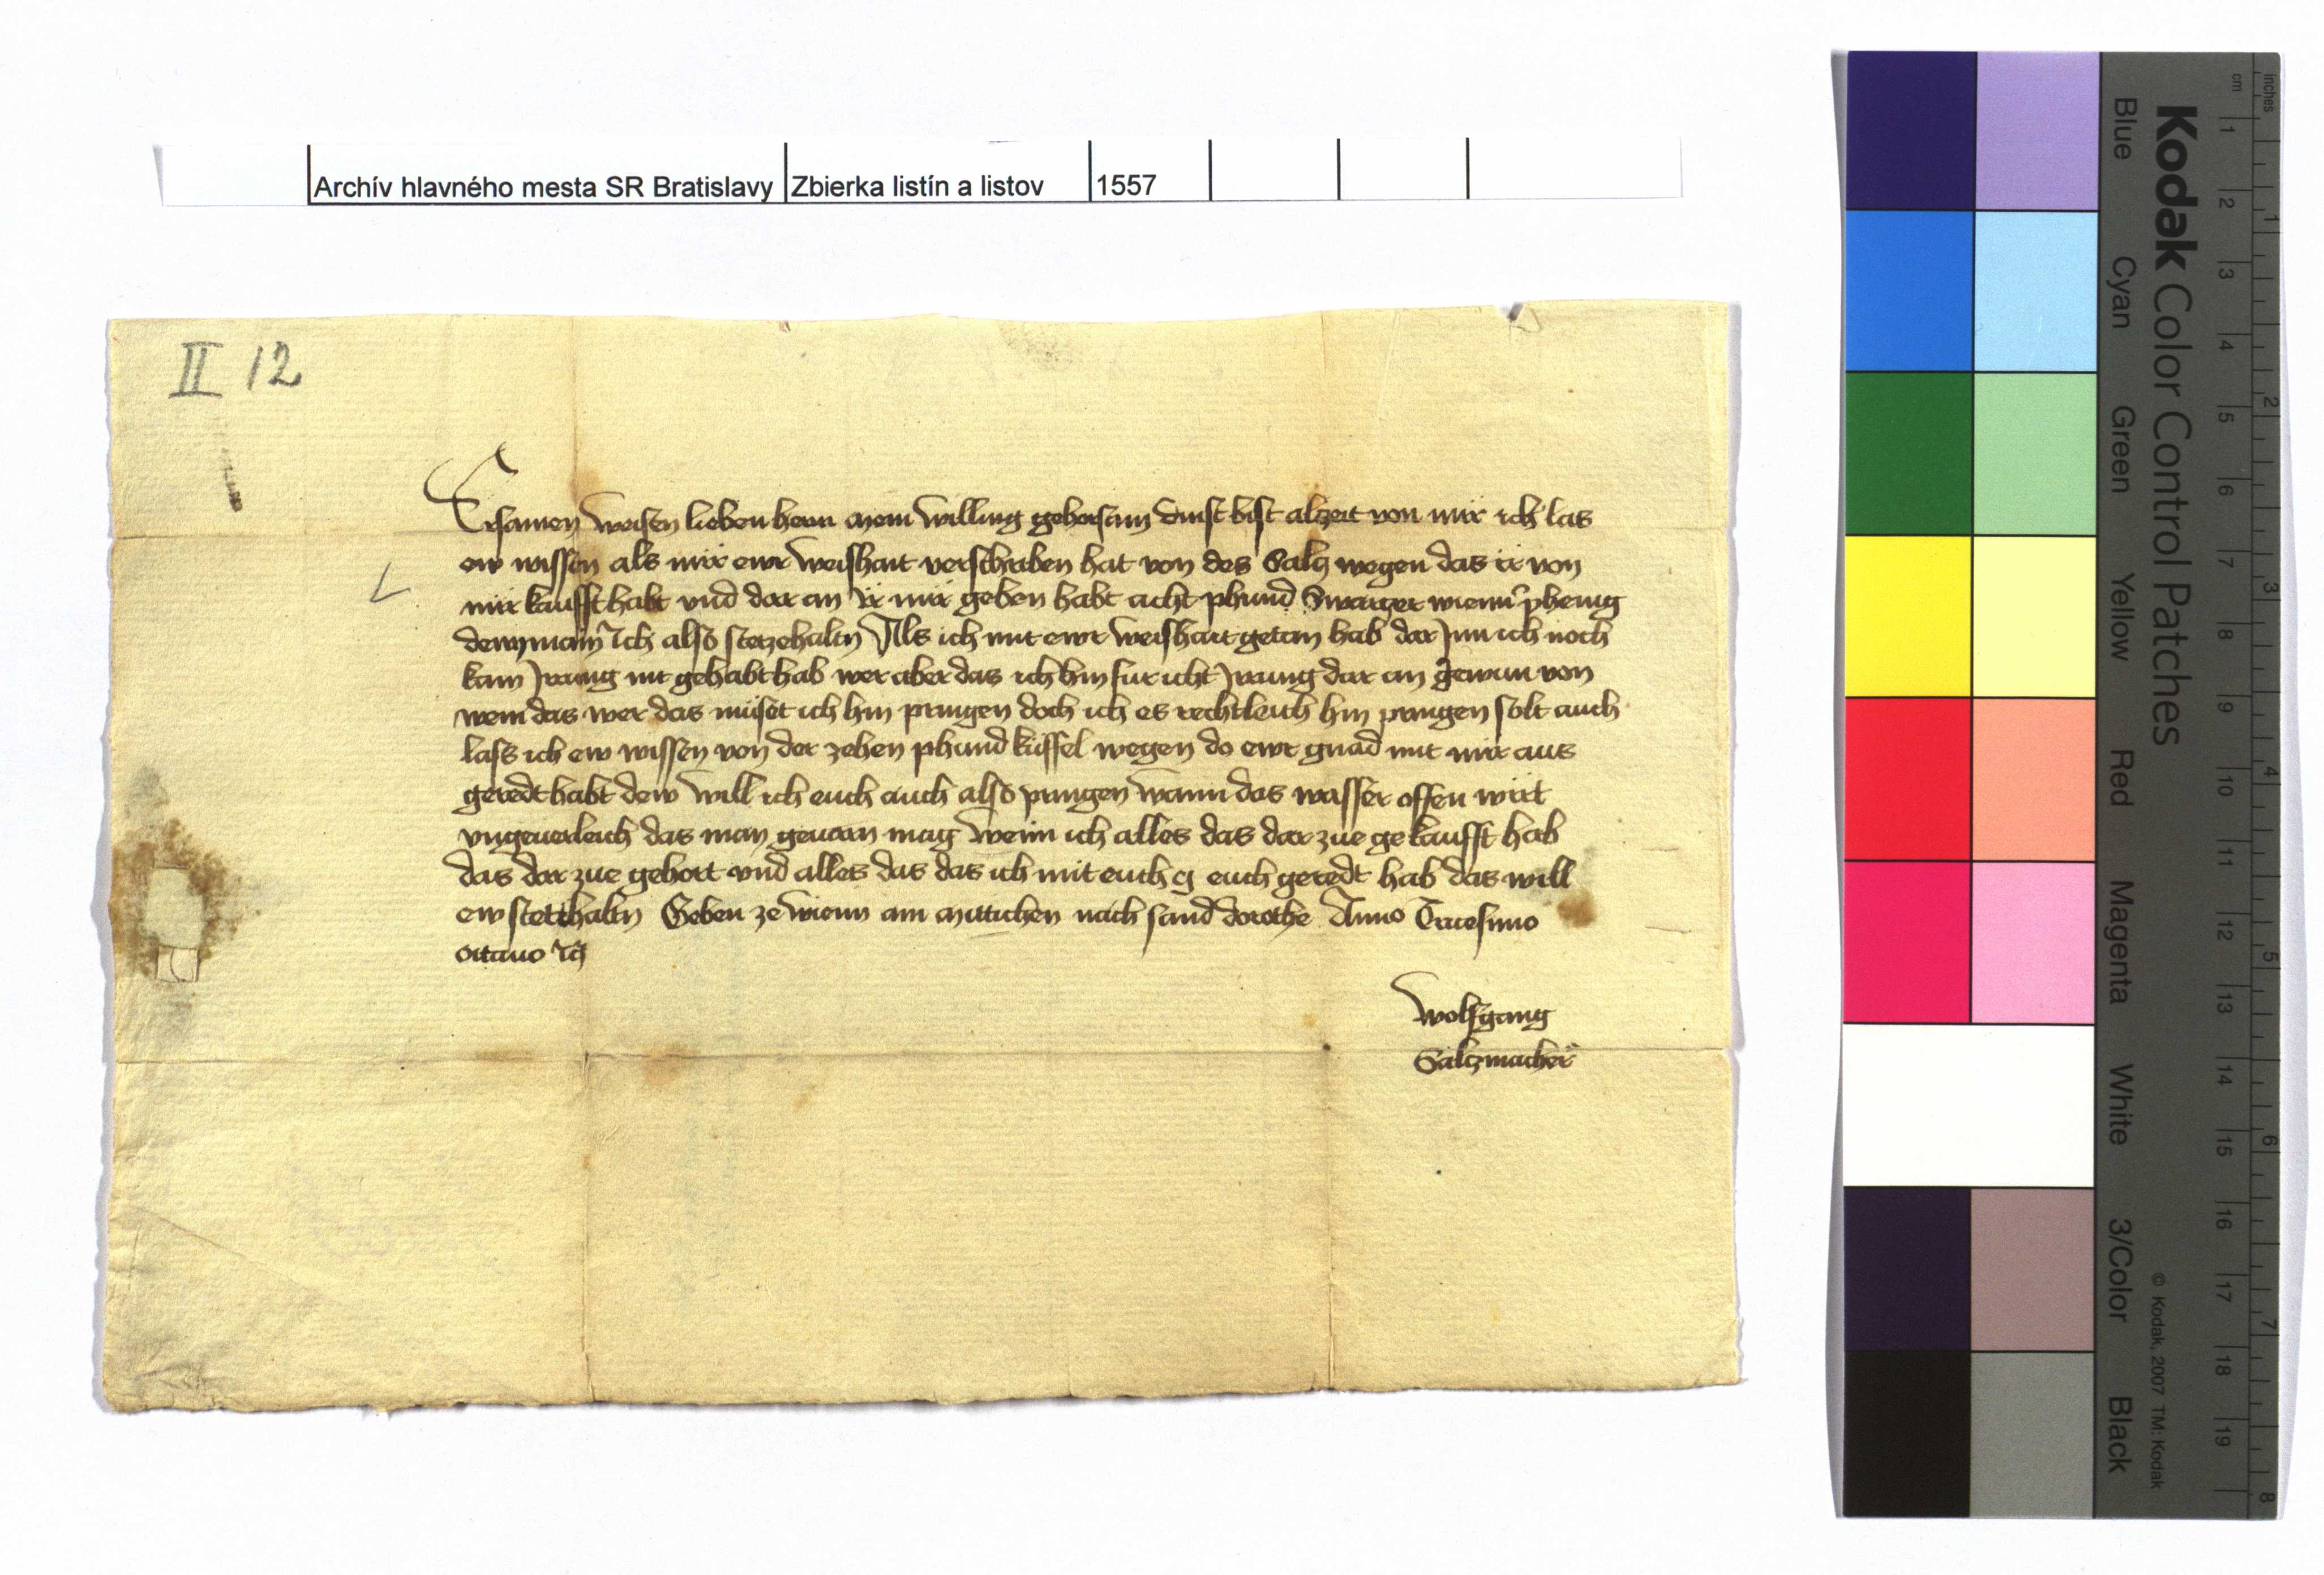 Archív hlavného mesta SR Bratislavy Zbierka listín a listov 1557
II 12
Ersamen weisen lieben hern mein willing gehorsam dinst bist alzeit von mir ich las
ew wissen als mir ewr weishait verschriben hat von des Salcz wegen das ir von
mir kaufft habt vnd dar an ir mir geben habt acht phund Swarczer wienn phenig
denn main Ich also stet zehaltn Als ich mit ewr weishait getan hab dar Inn ich noch
kain Irrung nit gehabt hab wer aber das ich hin fur icht Irrung dar an gewun von
wem das wer das müset ich hin pringen doch ich es rechtleich hin pringen solt auch
lass ich ew wissen von der zehen phund küffel wegen do ewr gnad mit mir aus
geredt habt dew will ich euch auch also pringen wann das wasser offen wirt
vngeuerleich das man geuarn mag wenn ich alles das dar zue gekaufft hab
das dar zue gehort vnd alles das das ich mit euch geredt hab das will
ew stet haltn Geben ze wienn am mittichen nach sand dorothe Anno Tricesimo
octauo
Wolfgang
Salczmacher
Kodak Color Control Patches
Blue Cyan Green Yellow Red Magenta White 3/Color Black
© Kodak, 2007 TM: Kodak
inches 1 2 3 4 5 6 7 8
cm 1 2 3 4 5 6 7 8 9 10 11 12 13 14 15 16 17 18 19